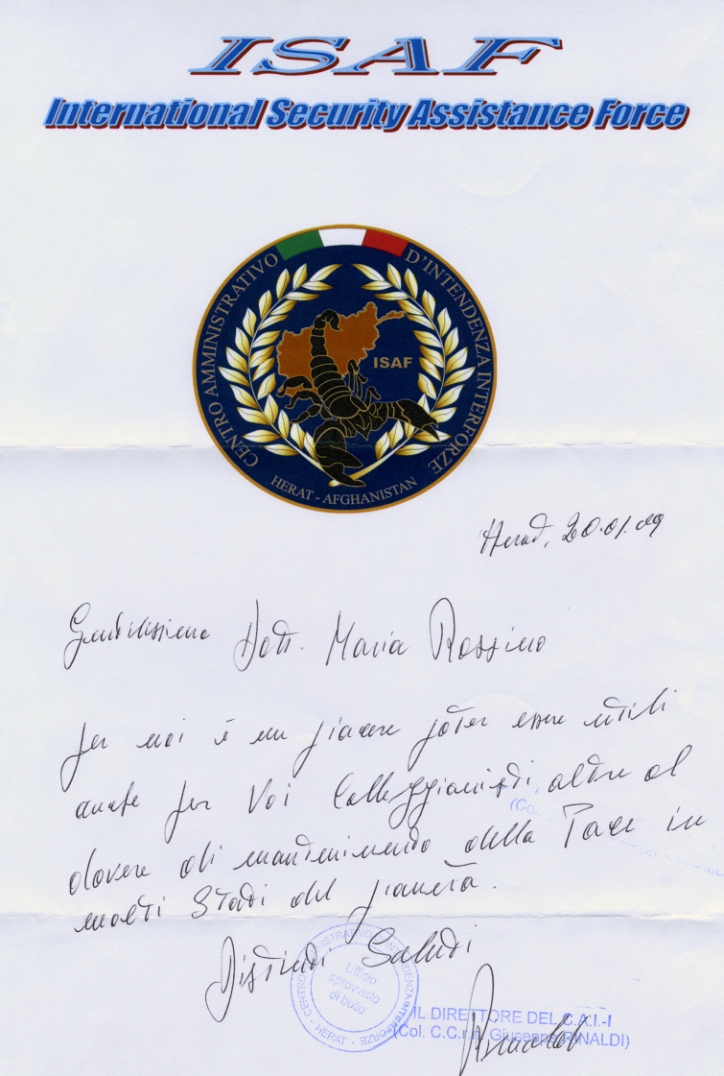 ISAF
International Security Assistance Force
CENTRO AMMINISTRATIVO D'INTENDENZA INTERFORZE
ISAF
HERAT - AFGHANISTAN
Herat, 20.01.09
Gentilissimo Dott. Maria Rossino
per noi è un piacere poter essere utili
anche per Voi Collezzionisti, oltre al
dovere di mantenimento della Pace in
molti Stati del pianeta.
Distinti Saluti
Ufficio
sprovvisto
di bollo
IL DIRETTORE DEL C.A.I.-I
(Col. C.C.r.n. Giuseppe RINALDI)